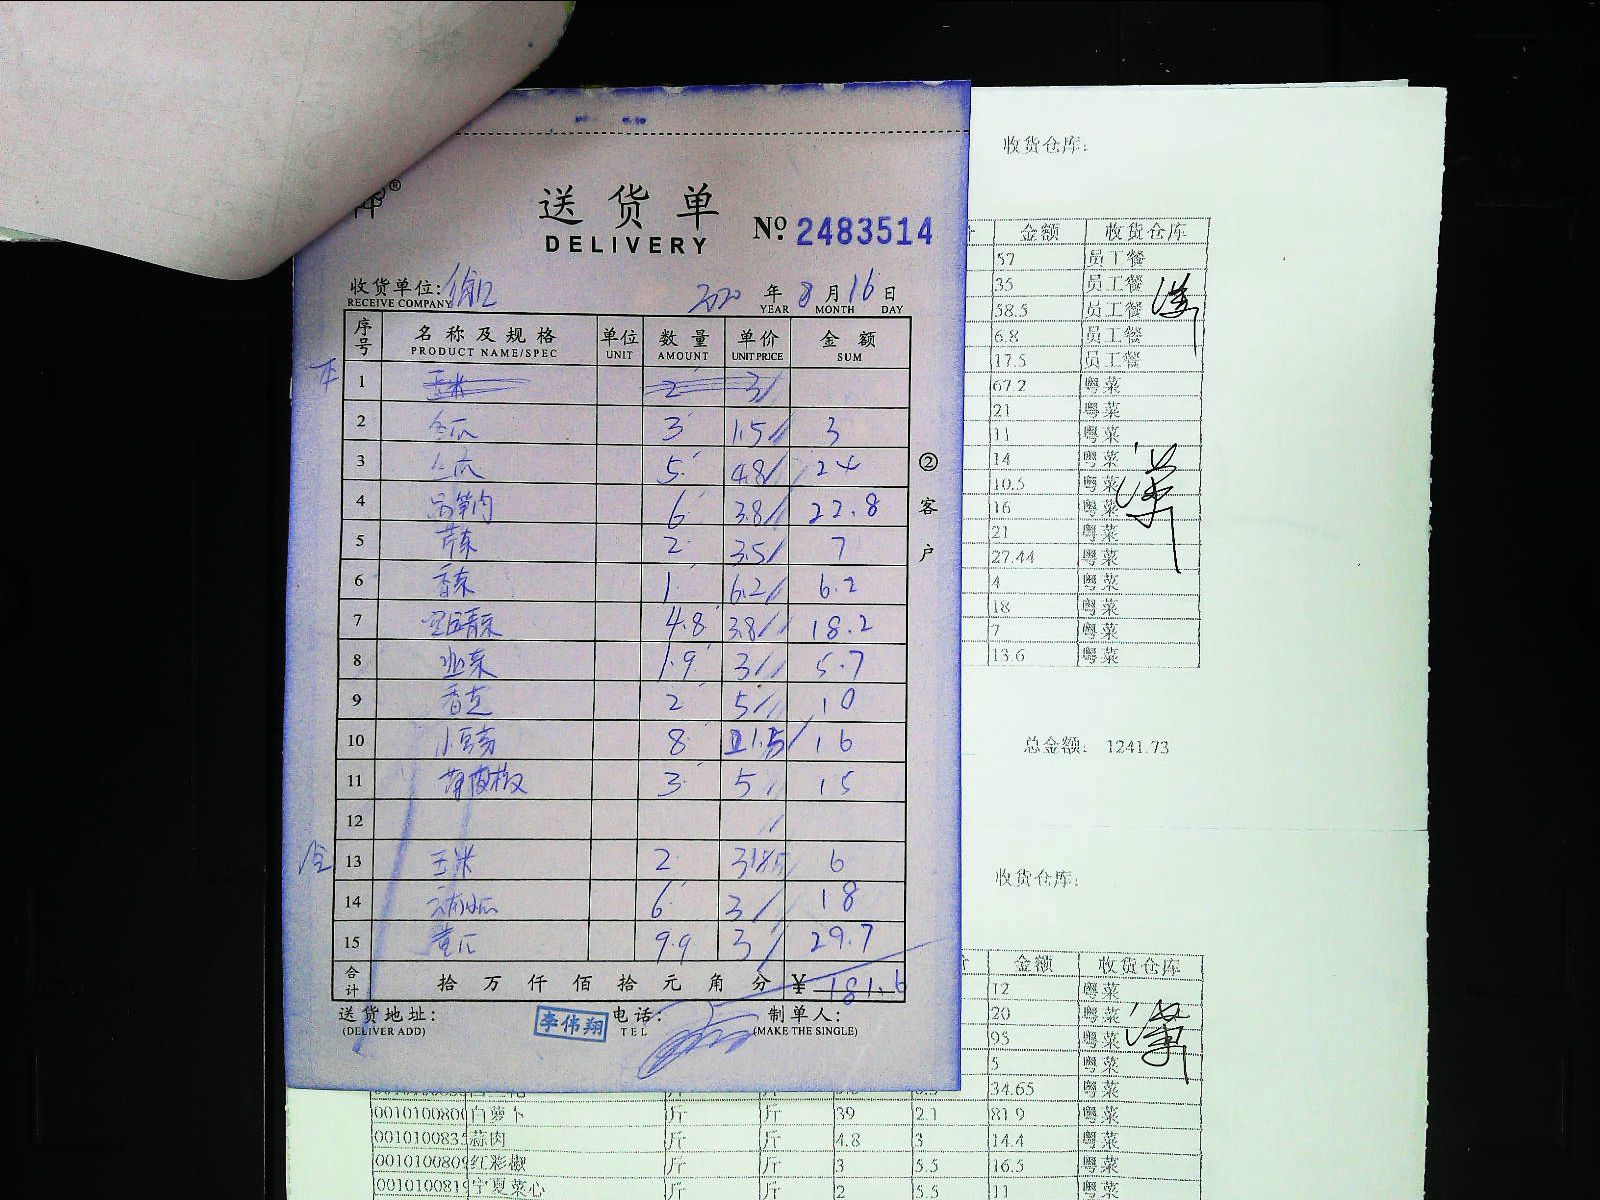 送货单
DELIVERY
№ 2483514
收货单位:
RECEIVE COMPANY
2020 年 8 月 16 日
YEAR MONTH DAY
序号 名称及规格 单位 数量 单价 金额
PRODUCT NAME/SPEC UNIT AMOUNT UNIT PRICE SUM
1 玉米 2 3
2 冬瓜 3 1.5 3
3 5 4.8 24
4 6 3.8 22.8
5 芹菜 2 3.5 7
6 香菜 1 6.2 6.2
7 4.8 3.8 18.2
8 1.9 3 5.7
9 2 5 10
10 8 1.5 16
11 3 5 15
12
13 玉米 2 3 6
14 6 3 18
15 黄瓜 9.9 3 29.7
合计 拾 万 仟 佰 拾 元 角 分 ¥ 181.6
送货地址: 电话: 制单人:
(DELIVER ADD) TEL (MAKE THE SINGLE)
李伟翔
②客户
收货仓库:
金额 收货仓库
57 员工餐
35 员工餐
58.5 员工餐
6.8 员工餐
17.5 员工餐
67.2 粤菜
21 粤菜
11 粤菜
14 粤菜
10.5 粤菜
16 粤菜
21 粤菜
27.44 粤菜
4 粤菜
18 粤菜
7 粤菜
13.6 粤菜
总金额: 1241.73
收货仓库:
金额 收货仓库
12 粤菜
20 粤菜
95 粤菜
5 粤菜
34.65 粤菜
白萝卜 斤 斤 39 2.1 81.9 粤菜
蒜肉 斤 斤 4.8 3 14.4 粤菜
红彩椒 斤 斤 3 5.5 16.5 粤菜
宁夏菜心 斤 斤 2 5.5 11 粤菜